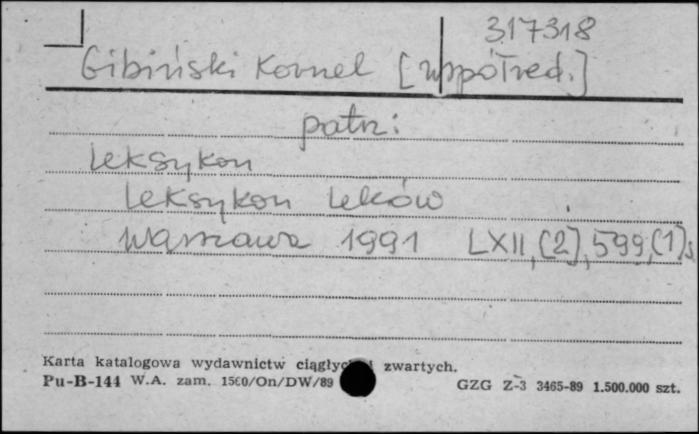 317318
Gibiński Kornel [współred.]
patrz:
Leksykon
Leksykon leków
Warszawa 1991 LXII,[2],599,[1]s.
Karta katalogowa wydawnictw ciągłych i zwartych.
Pu-B-144 W.A. zam. 1560/On/DW/89 GZG Z-3 3465-89 1.500.000 szt.